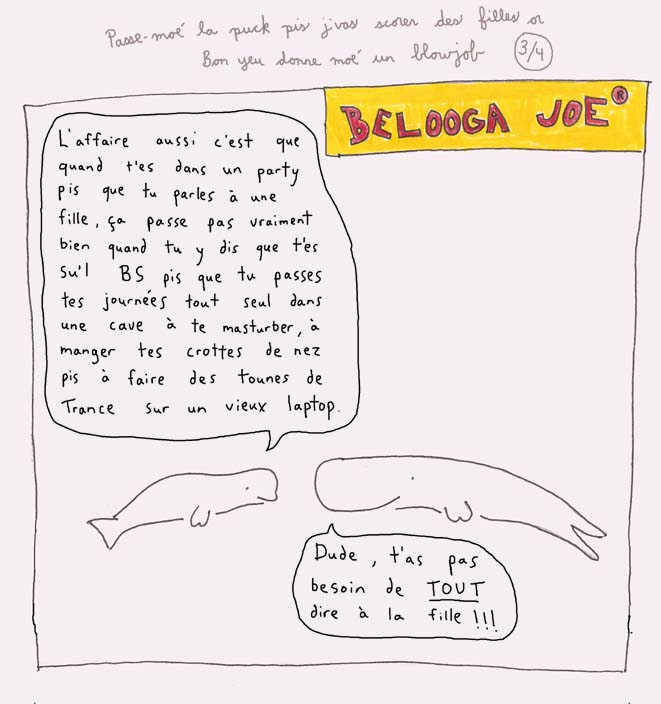 Passe-moé la puck pis j'vas scorer des filles or
Bon yeu donne moé un blowjob 3/4
BELOOGA JOE®
L'affaire aussi c'est que
quand t'es dans un party
pis que tu parles à une
fille, ça passe pas vraiment
bien quand tu y dis que t'es
su'l BS pis que tu passes
tes journées tout seul dans
une cave à te masturber, à
manger tes crottes de nez
pis à faire des tounes de
Trance sur un vieux laptop.
Dude, t'as pas
besoin de TOUT
dire à la fille !!!